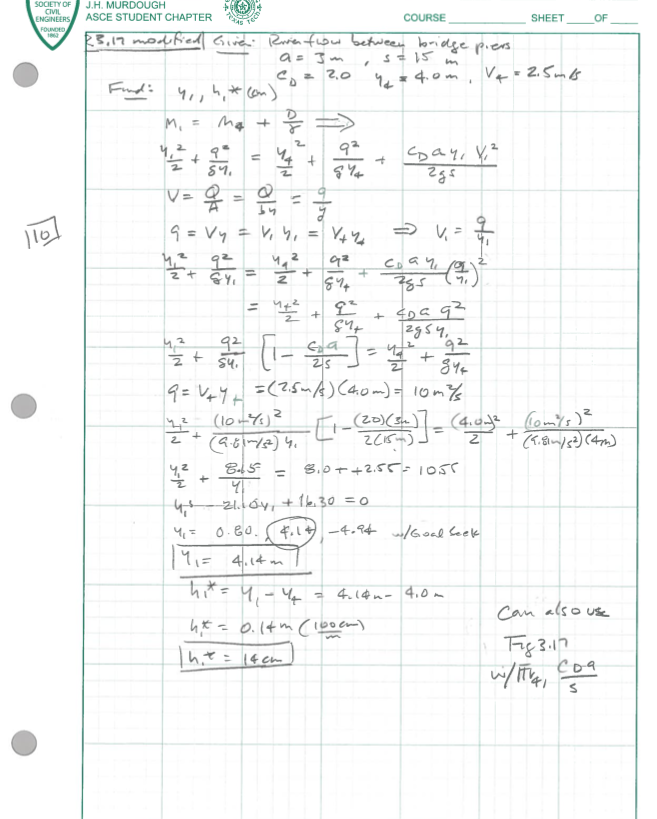 SOCIETY OF
CIVIL
ENGINEERS
FOUNDED
1852
J.H. MURDOUGH
ASCE STUDENT CHAPTER
TEXAS TECH
COURSE ________ SHEET ____ OF ____
P3.17 modified Given: River flow between bridge piers
a = 3m, s = 15 m
C_D = 2.0 y_4 = 4.0m, V_4 = 2.5m/s
Find: y_1, h_1* (cm)
M_1 = M_4 + D/γ ⟹
y_1²/2 + q²/gy_1 = y_4²/2 + q²/gy_4 + C_D a y_1 V_1²/2gs
V = Q/A = Q/by = q/y
110
q = Vy = V_1 y_1 = V_4 y_4 ⟹ V_1 = q/y_1
y_1²/2 + q²/gy_1 = y_4²/2 + q²/gy_4 + C_D a y_1/2gs (q/y_1)²
= y_4²/2 + q²/gy_4 + C_D a q²/2gsy_1
y_1²/2 + q²/gy_1 [1 - C_D a/2s] = y_4²/2 + q²/gy_4
q = V_4 y_4 = (2.5m/s)(4.0m) = 10m²/s
y_1²/2 + (10m²/s)²/(9.81m/s²) y_1 [1 - (2.0)(3m)/2(15m)] = (4.0m)²/2 + (10m²/s)²/(9.81m/s²)(4m)
y_1²/2 + 8.15/y_1 = 8.0 + +2.55 = 10.55
y_1³ - 21.10y_1 + 16.30 = 0
y_1 = 0.80, 4.14, -4.94 w/Goal Seek
y_1 = 4.14m
h_1* = y_1 - y_4 = 4.14m - 4.0m
h_1* = 0.14m (100cm/m)
h_1* = 14cm
Can also use
Fig 3.17
w/ Fr_4, C_D a/s